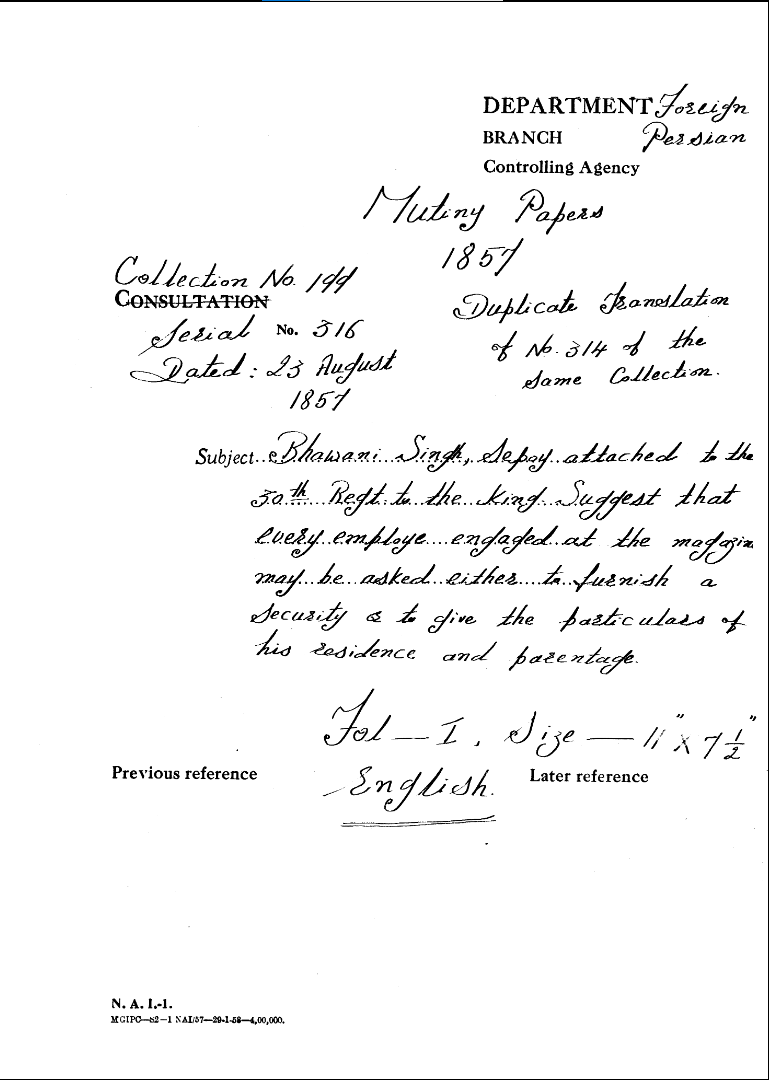 DEPARTMENT Foreign
BRANCH Persian
Controlling Agency
Mutiny Papers
1857
Collection No. 199
CONSULTATION
Serial No. 316
Dated: 23 August
1857
Duplicate Translation
of No. 314 of the
Same Collection.
Subject..Bhawani Singh, Sepoy attached to the
30th Regt to the King Suggest that
every employe engaged at the magazin
may be asked either to furnish a
security or to give the particulars of
his residence and parentage.
Fol — I, Size — 11" X 7 1/2"
English.
Previous reference
Later reference
N. A. I.-1.
MGIPC—S2—1 NAI/57—29-1-58—4,00,000.